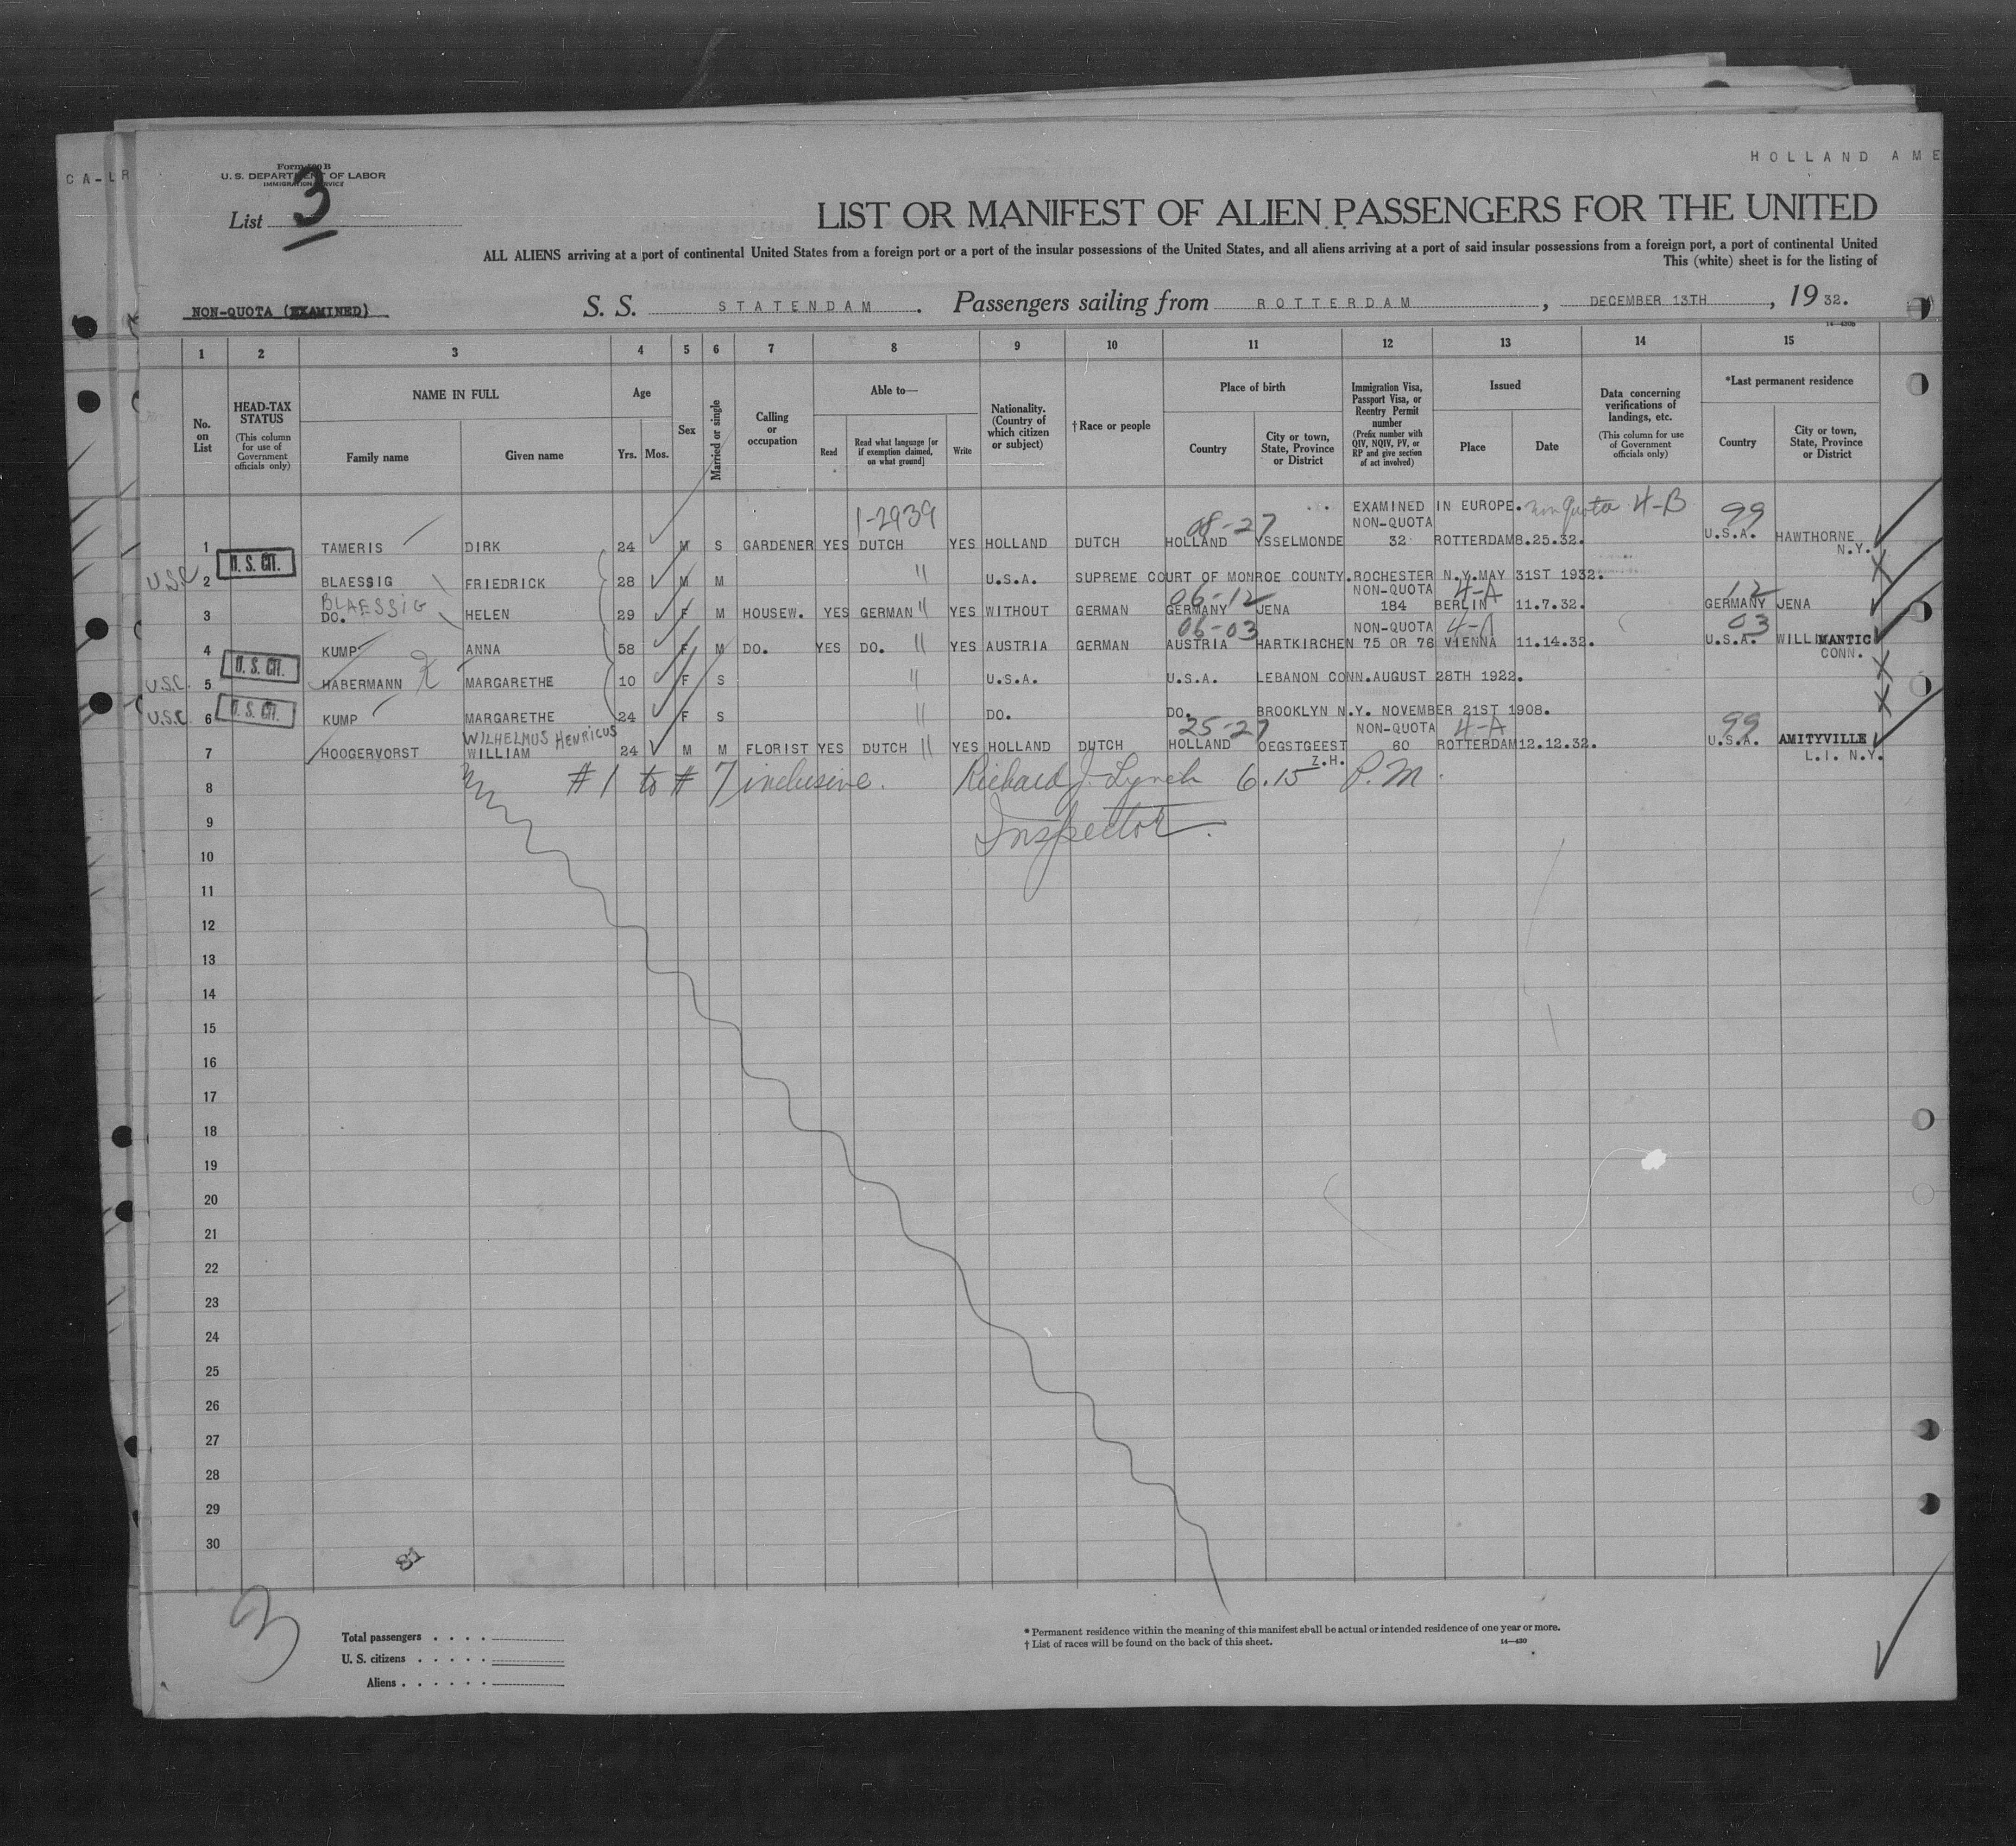 CA-LR
HOLLAND AME
Form 500 B
U. S. DEPARTMENT OF LABOR
IMMIGRATION SERVICE
List 3
LIST OR MANIFEST OF ALIEN PASSENGERS FOR THE UNITED
ALL ALIENS arriving at a port of continental United States from a foreign port or a port of the insular possessions of the United States, and all aliens arriving at a port of said insular possessions from a foreign port, a port of continental United
This (white) sheet is for the listing of
NON-QUOTA (EXAMINED)
S. S. STATENDAM. Passengers sailing from ROTTERDAM, DECEMBER 13TH, 1932.
14—430b
1 2 3 4 5 6 7 8 9 10 11 12 13 14 15
No. on List
HEAD-TAX STATUS (This column for use of Government officials only)
NAME IN FULL
Family name
Given name
Age
Yrs.
Mos.
Sex
Married or single
Calling or occupation
Able to—
Read
Read what language [or if exemption claimed, on what ground]
Write
Nationality. (Country of which citizen or subject)
†Race or people
Place of birth
Country
City or town, State, Province or District
Immigration Visa, Passport Visa, or Reentry Permit number (Prefix number with QIV, NQIV, PV, or RP and give section of act involved)
Issued
Place
Date
Data concerning verifications of landings, etc. (This column for use of Government officials only)
*Last permanent residence
Country
City or town, State, Province or District
1-2939
08-27
EXAMINED IN EUROPE. non quota 4-B
99
NON-QUOTA
1 TAMERIS DIRK 24 M S GARDENER YES DUTCH YES HOLLAND DUTCH HOLLAND YSSELMONDE 32 ROTTERDAM 8.25.32. U.S.A. HAWTHORNE
N.Y.
U.S. CIT.
USC 2 BLAESSIG FRIEDRICK 28 M M " U.S.A. SUPREME COURT OF MONROE COUNTY.ROCHESTER N.Y.MAY 31ST 1932.
BLAESSIG 06-12 NON-QUOTA 4-A 12
3 DO. HELEN 29 F M HOUSEW. YES GERMAN " YES WITHOUT GERMAN GERMANY JENA 184 BERLIN 11.7.32. GERMANY JENA
06-03 NON-QUOTA 4-A 03
4 KUMP ANNA 58 F M DO. YES DO. " YES AUSTRIA GERMAN AUSTRIA HARTKIRCHEN 75 OR 76 VIENNA 11.14.32. U.S.A. WILLIMANTIC
CONN.
U.S. CIT.
U.S.C. 5 HABERMANN MARGARETHE 10 F S " U.S.A. U.S.A. LEBANON CONN.AUGUST 28TH 1922.
U.S. CIT.
USC 6 KUMP MARGARETHE 24 F S " DO. DO. BROOKLYN N.Y. NOVEMBER 21ST 1908.
WILHELMUS HENRICUS 25-27 NON-QUOTA 4-A 99
7 HOOGERVORST WILLIAM 24 M M FLORIST YES DUTCH " YES HOLLAND DUTCH HOLLAND OEGSTGEEST 60 ROTTERDAM 12.12.32. U.S.A. AMITYVILLE
Z.H. L.I. N.Y.
8 #1 to #7 inclusive. Richard J. Lynch 6.15 P.M.
9 Inspector.
10
11
12
13
14
15
16
17
18
19
20
21
22
23
24
25
26
27
28
29
30
3
Total passengers
U. S. citizens
Aliens
* Permanent residence within the meaning of this manifest shall be actual or intended residence of one year or more.
† List of races will be found on the back of this sheet.
14—430